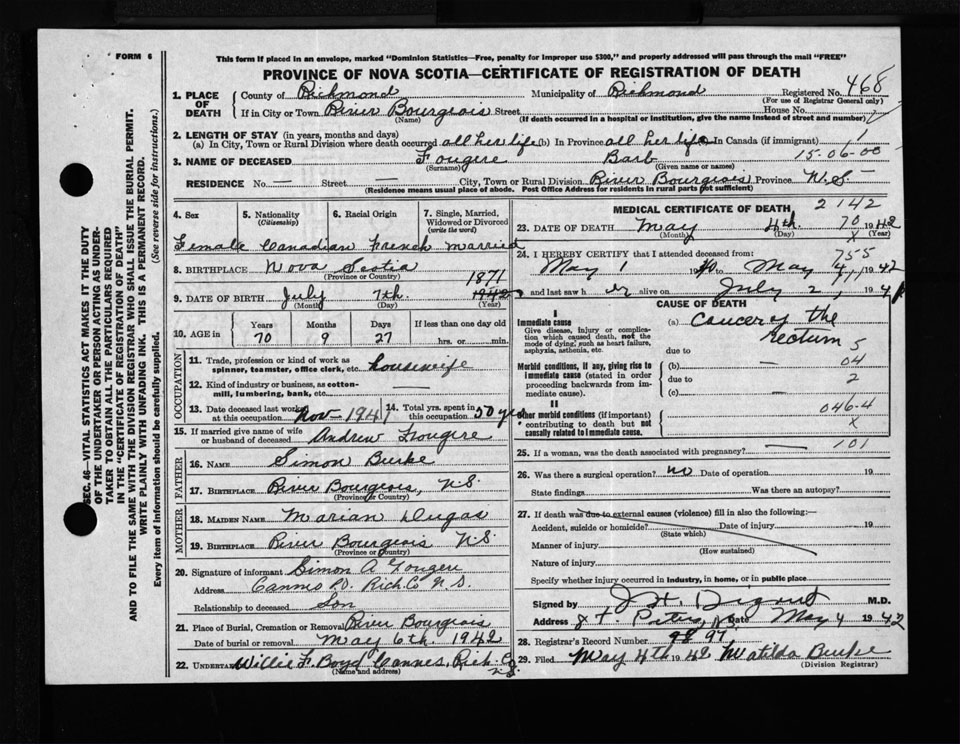 FORM 6
This form if placed in an envelope, marked "Dominion Statistics—Free, penalty for improper use $300," and properly addressed will pass through the mail "FREE"
PROVINCE OF NOVA SCOTIA—CERTIFICATE OF REGISTRATION OF DEATH
SEC. 46—VITAL STATISTICS ACT MAKES IT THE DUTY
OF THE UNDERTAKER OR PERSON ACTING AS UNDER-
TAKER TO OBTAIN ALL THE PARTICULARS REQUIRED
IN THE "CERTIFICATE OF REGISTRATION OF DEATH"
AND TO FILE THE SAME WITH THE DIVISION REGISTRAR WHO SHALL ISSUE THE BURIAL PERMIT.
WRITE PLAINLY WITH UNFADING INK. THIS IS A PERMANENT RECORD.
Every item of information should be carefully supplied. (See reverse side for instructions.)
1. PLACE OF DEATH County of Richmond Municipality of Richmond Registered No. 468
(For use of Registrar General only)
If in City or Town River Bourgeois Street House No.
(Name) (If death occurred in a hospital or institution, give the name instead of street and number)
2. LENGTH OF STAY (in years, months and days)
(a) In City, Town or Rural Division where death occurred all her life (b) In Province all her life (c) In Canada (if immigrant) 1
3. NAME OF DECEASED Fougere Barb 15-06-00
(Surname) (Given name or names)
RESIDENCE No. — Street — City, Town or Rural Division River Bourgeois Province N.S.
(Residence means usual place of abode. Post Office Address for residents in rural parts not sufficient)
4. Sex 5. Nationality (Citizenship) 6. Racial Origin 7. Single, Married, Widowed or Divorced (write the word)
Female Canadian French married
8. BIRTHPLACE Nova Scotia
(Province or Country)
1871
9. DATE OF BIRTH July 7th. 1942
(Month) (Day) (Year)
10. AGE in Years Months Days If less than one day old
70 9 27 hrs. or min.
OCCUPATION
11. Trade, profession or kind of work as spinner, teamster, office clerk, etc. housewife
12. Kind of industry or business, as cotton-mill, lumbering, bank, etc. —
13. Date deceased last worked at this occupation Nov - 1941 14. Total yrs. spent in this occupation 50 yrs
15. If married give name of wife or husband of deceased Andrew Fougere
FATHER
16. NAME Simon Burke
17. BIRTHPLACE River Bourgeois, N.S.
(Province or Country)
MOTHER
18. MAIDEN NAME Marian Dugas
19. BIRTHPLACE River Bourgeois N.S.
(Province or Country)
20. Signature of informant Simon A Fougere
Address Cannes P.O. Rich Co N.S.
Relationship to deceased Son
21. Place of Burial, Cremation or Removal River Bourgeois
Date of burial or removal May 6th. 1942
22. UNDERTAKER Willie F. Boyd Cannes, Rich. Co N.S.
(Name and address)
MEDICAL CERTIFICATE OF DEATH 2142
23. DATE OF DEATH May 4th. 1942
70 X
(Month) (Day) (Year)
24. I HEREBY CERTIFY that I attended deceased from: 755
May 1 19 to May 4, 1942
and last saw her alive on July 2, 194
CAUSE OF DEATH
I
Immediate cause
Give disease, injury or complication which caused death, not the mode of dying, such as heart failure, asphyxia, asthenia, etc.
(a) Cancer of the rectum 5
due to
Morbid conditions, if any, giving rise to immediate cause (stated in order proceeding backwards from immediate cause).
(b) 04
due to 2
(c)
II
Other morbid conditions (if important) contributing to death but not causally related to immediate cause.
046-4
X
25. If a woman, was the death associated with pregnancy? — 101
26. Was there a surgical operation? no Date of operation 19
State findings Was there an autopsy?
27. If death was due to external causes (violence) fill in also the following:—
Accident, suicide or homicide? Date of injury 19
(State which)
Manner of injury
(How sustained)
Nature of injury
Specify whether injury occurred in industry, in home, or in public place
Signed by M.D.
Address St. Peters, N.S. Date May 4 1942
28. Registrar's Record Number 97,
29. Filed May 4th 1942 Matilda Burke
(Division Registrar)